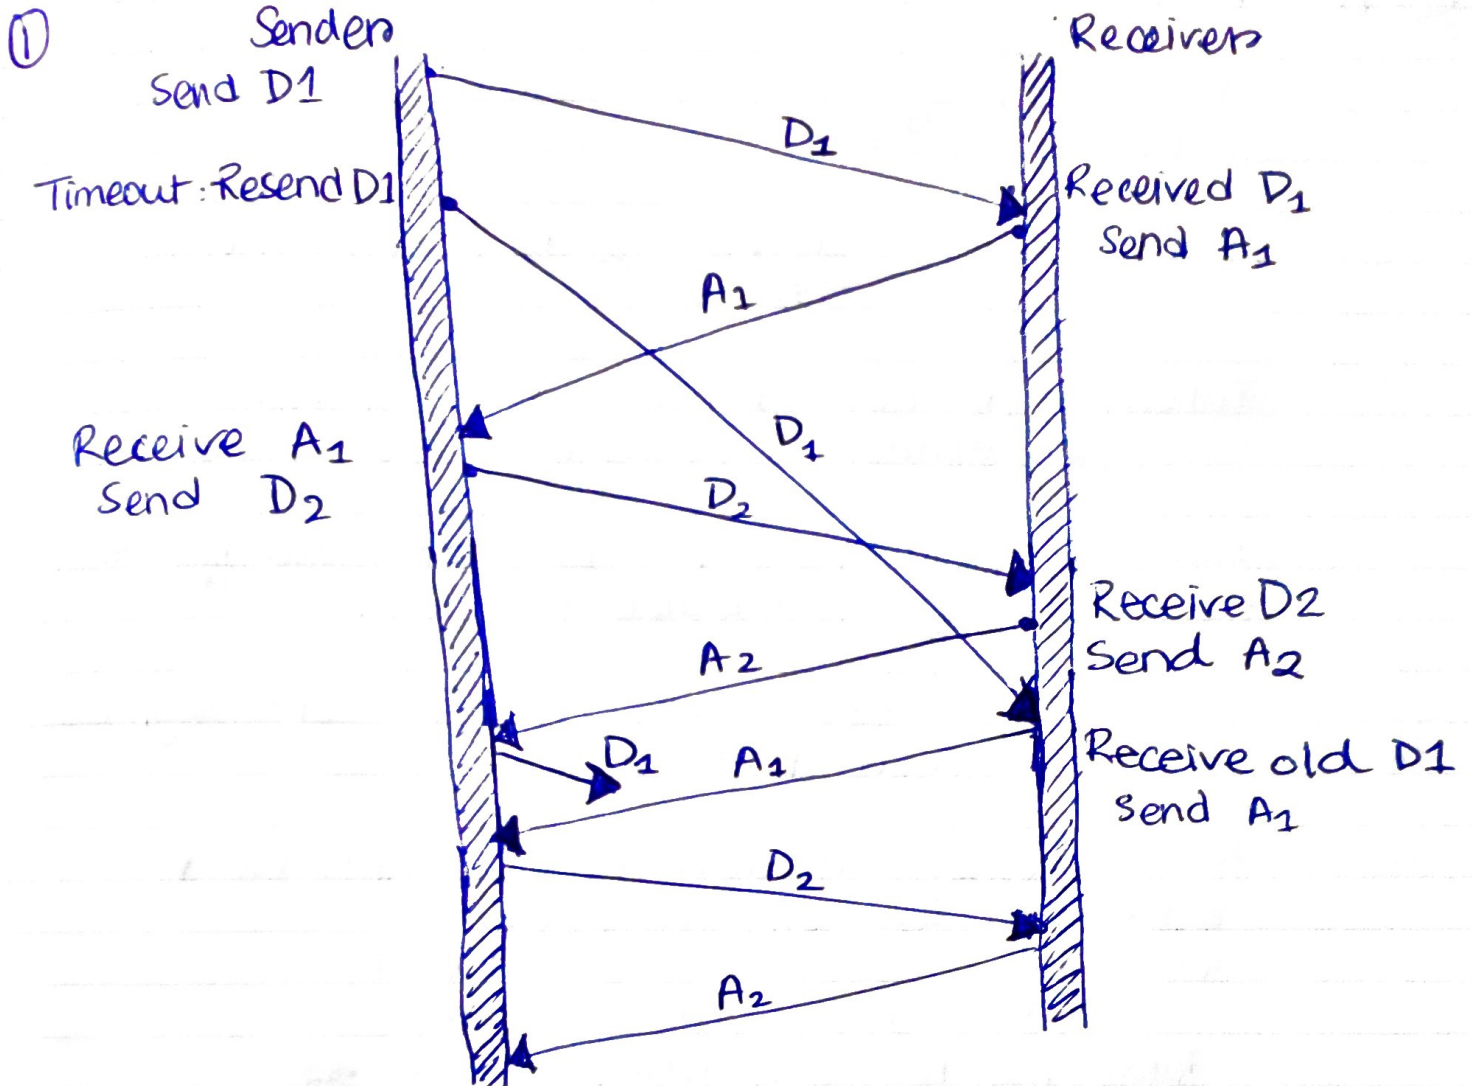 1
Sender
Receiver
Send D1
D1
Timeout: Resend D1
Received D1
Send A1
A1
D1
Receive A1
Send D2
D2
Receive D2
Send A2
A2
D1
A1
Receive old D1
Send A1
D2
A2